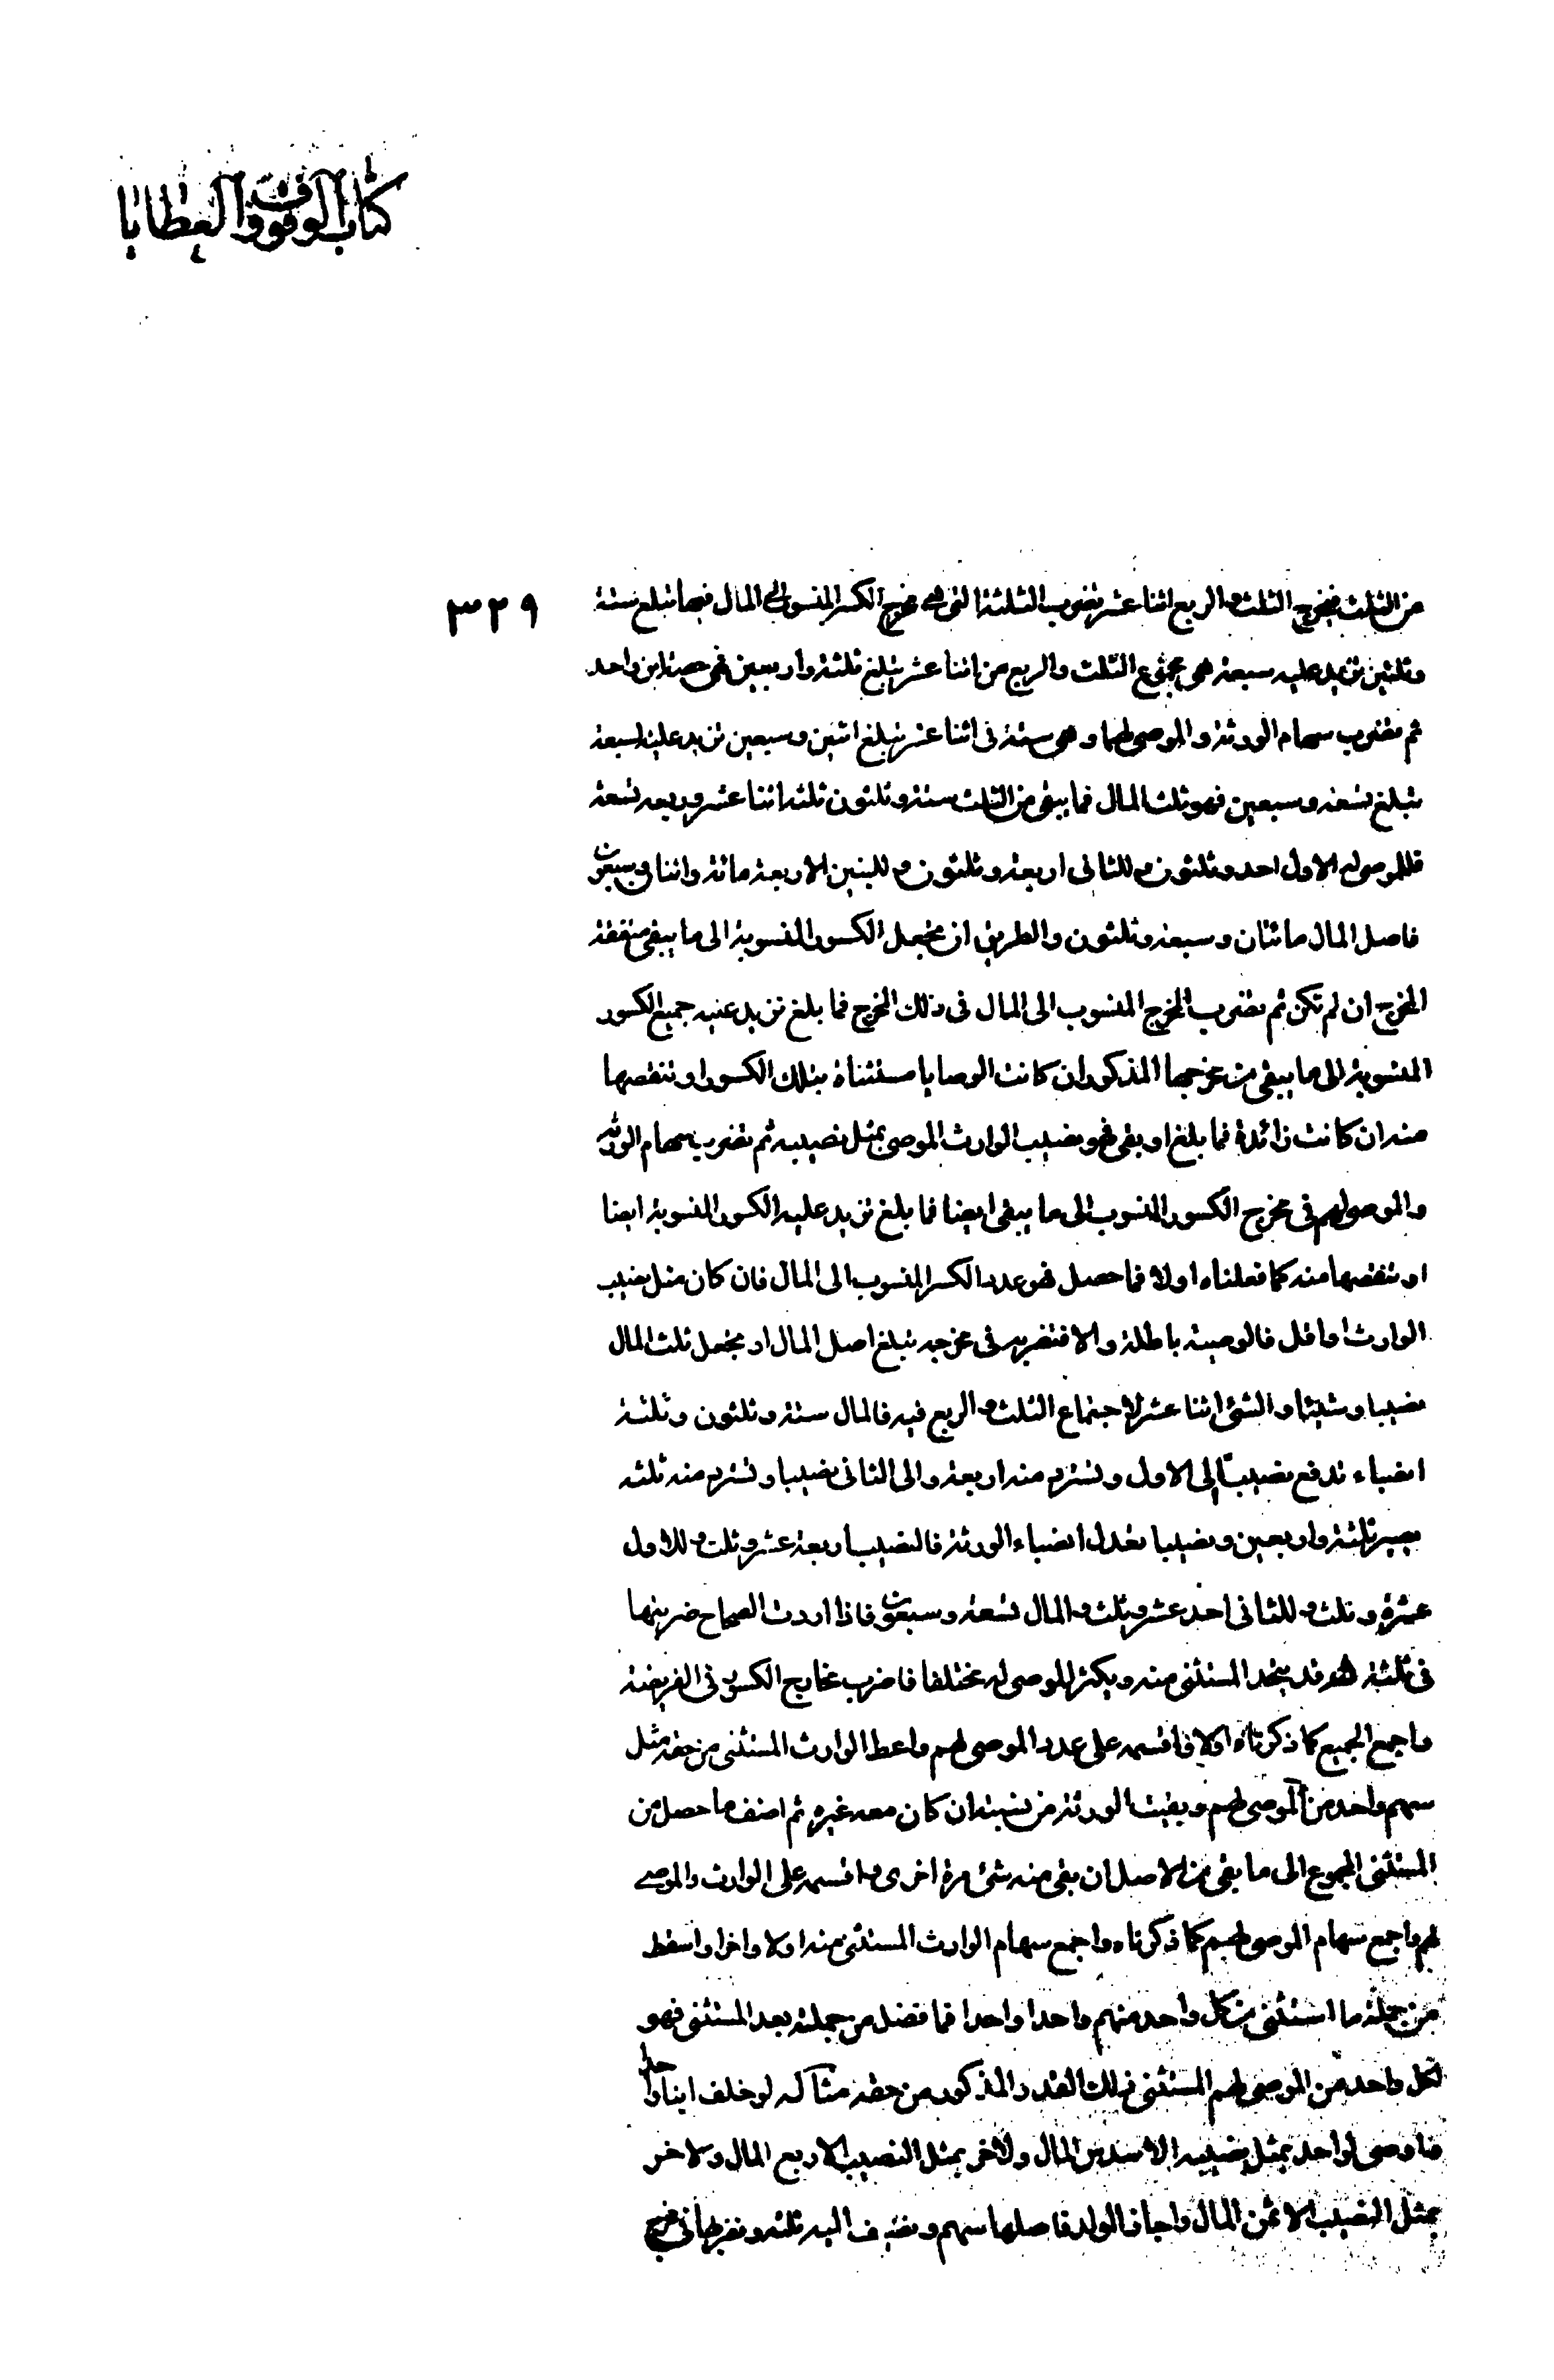 كتاب الوقوف والعطايا
٣٢٩
من الثلث فمخرج الثلث والربع اثنا عشر تضرب الثلثة التى هى مخرج الكسر المنسوب الى المال فيها تبلغ ستة
وثلثين تزيد عليه سبعة هى مجموع الثلث والربع من اثنا عشر تبلغ ثلثة واربعين فهى حصة ابن واحد
ثم تضرب سهام الورثة والموصى لهما وهى ستة فى اثنا عشر تبلغ اثنين وسبعين تزيد عليه سبعة
تبلغ تسعة وسبعين فهو ثلث المال فما يبقى من الثلث ستة وثلثون ثلثه اثنا عشر وربعه تسعة
فللموصى له الاول احد وثلثون وللثانى اربعة وثلثون وللبنين الاربعة مائة واثنا وسبعون
فاصل المال مائتان وسبعة وثلثون والطريق ان تجعل الكسور المنسوبة الى ما يبقى متفقة
المخرج ان لم تكن ثم تضرب المخرج المنسوب الى المال فى ذلك المخرج فما بلغ تزيد عليه جميع الكسور
المنسوبة الى ما يبقى من مخرجها المذكور ان كانت الوصايا مستثناة بتلك الكسور او تنقصها
منه ان كانت زائدة فما بلغ او بقى فهو نصيب الوارث الموصى بمثل نصيبه ثم تضرب سهام الورثة
والموصى لهم فى مخرج الكسور المنسوب الى ما يبقى ايضا فما بلغ تزيد عليه الكسور المنسوبة ايضا
او تنقصها منه كما فعلناه اولا فما حصل فهو عدد الكسر المنسوب الى المال فان كان مثل نصيب
الوارث او اقل فالوصية باطلة والا فتضربه فى مخرجه تبلغ اصل المال او تجعل ثلث المال
نصيبا وشيئا والشئ اثنا عشر لاجتماع الثلث والربع فيه فالمال ستة وثلثون وثلثة
انصباء تدفع نصيبا الى الاول وتسترد منه اربعة والى الثانى نصيبا وتسترد منه ثلثه
يصير ثلثة واربعين ونصيبا تعدل انصباء الورثة فالنصيب اربعة عشر وثلث وللاول
عشرة وثلث وللثانى احد عشر وثلث والمال تسعة وسبعون فاذا اردت الصحاح ضربتها
فى ثلثة وقد يتحد المستثنى منه ويكثر الموصى له مختلفا فاضرب مخارج الكسور فى الفريضة
واجمع الجميع كما ذكرناه اولا واقسمه على عدد الموصى لهم واعط الوارث المستثنى من حقه مثل
سهم واحد من الموصى لهم وبقيت الورثة من نسبته ان كان معه غيره ثم اضف ما حصل من
المستثنى المجموع الى ما بقى من الاصل ان بقى منه شئ مرة اخرى واقسمه على الوارث والموصى
لهم واجمع سهام الموصى لهم كما ذكرناه واجمع سهام الوارث المستثنى منه اولا واخرا واسقط
من جملة ما استثنى من كل واحد منهم واحدا واحدا فما فضل من جملته بعد المستثنى فهو
لكل واحد من الموصى لهم المستثنى ذلك القدر المذكور من حقه مثاله لو خلف ابنا واحدا
فاوصى لواحد بمثل نصيبه الا سدس المال ولاخر بمثل النصيب الا ربع المال ولاخر
بمثل النصيب الا ثمن المال واجاز الولد فاصلها سهم وتضيف اليه ثلثة وتضربها فى مخرج